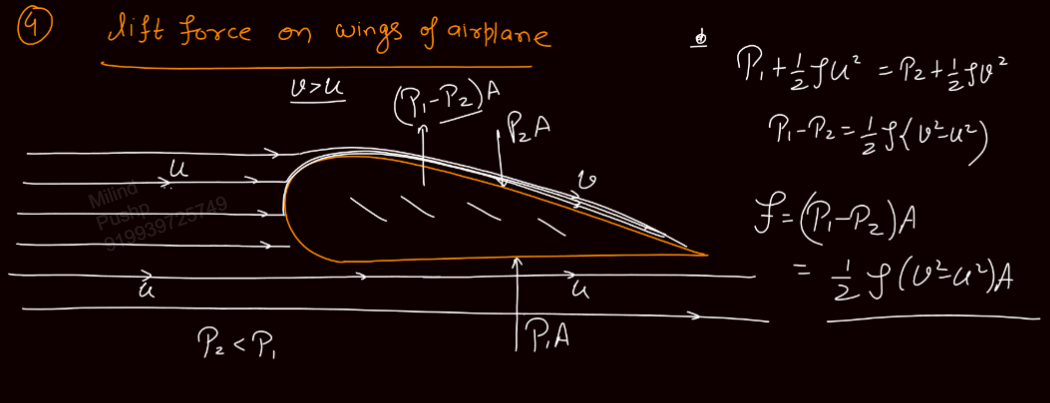 ④ lift force on wings of airplane
v>u
(P₁-P₂)A
P₂A
u
v
u
u
P₁A
P₂ < P₁
Milind
Pushp
919939725749
P₁+½ρu² = P₂+½ρv²
P₁-P₂ = ½ρ(v²-u²)
F = (P₁-P₂)A
= ½ρ(v²-u²)A